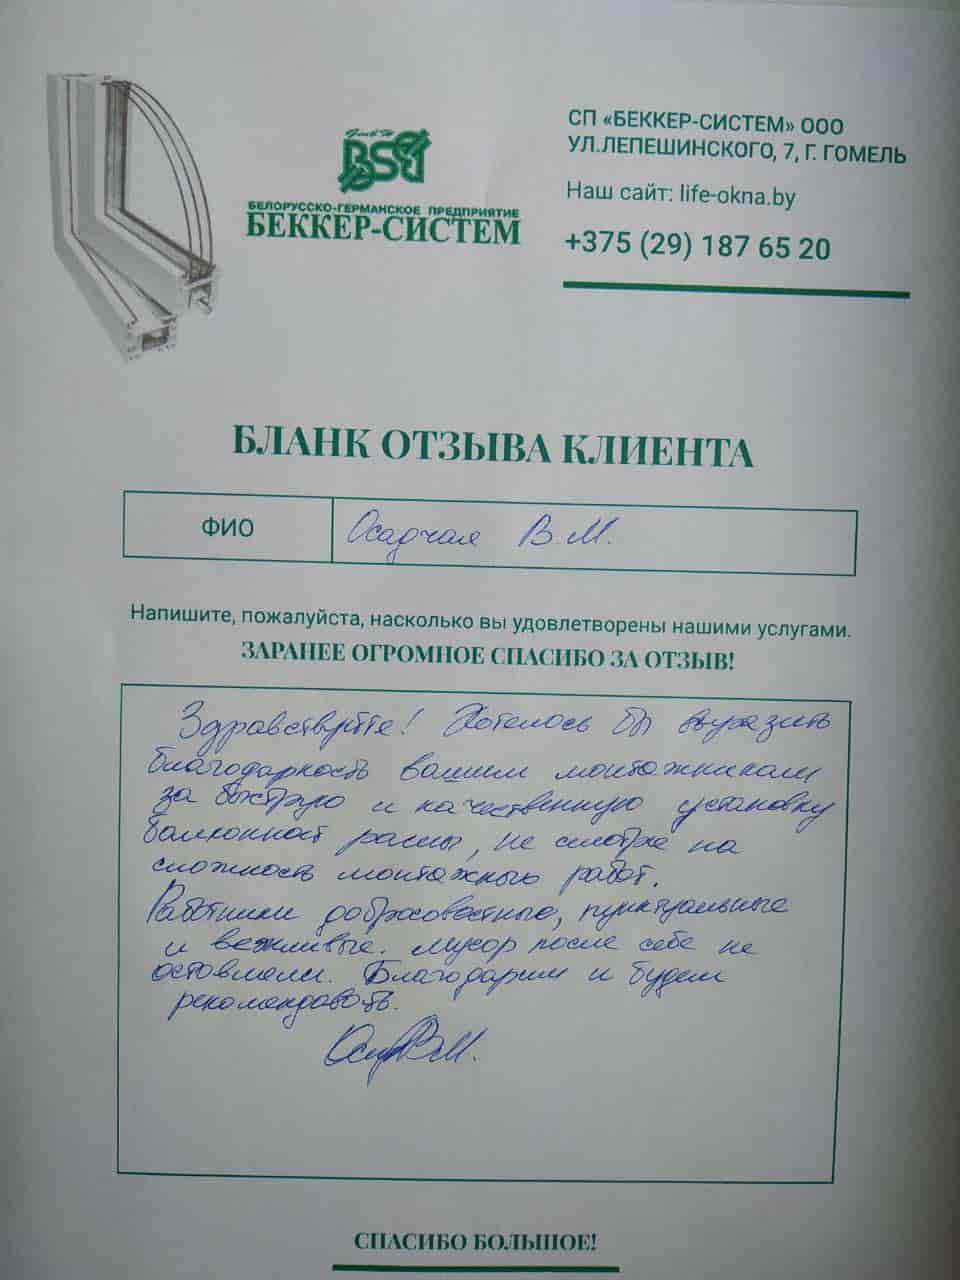 GmbH
BSG
БЕЛОРУССКО-ГЕРМАНСКОЕ ПРЕДПРИЯТИЕ
БЕККЕР-СИСТЕМ
СП «БЕККЕР-СИСТЕМ» ООО
УЛ.ЛЕПЕШИНСКОГО, 7, Г. ГОМЕЛЬ
Наш сайт: life-okna.by
+375 (29) 187 65 20
БЛАНК ОТЗЫВА КЛИЕНТА
ФИО
Осадчая В.М.
Напишите, пожалуйста, насколько вы удовлетворены нашими услугами.
ЗАРАНЕЕ ОГРОМНОЕ СПАСИБО ЗА ОТЗЫВ!
Здравствуйте! Хотелось бы выразить
благодарность вашим монтажникам
за быструю и качественную установку
балконной рамы, не смотря на
сложность монтажных работ.
Работники добросовестные, пунктуальные
и вежливые. Мусор после себя не
оставляли. Благодарим и будем
рекомендовать.
СПАСИБО БОЛЬШОЕ!